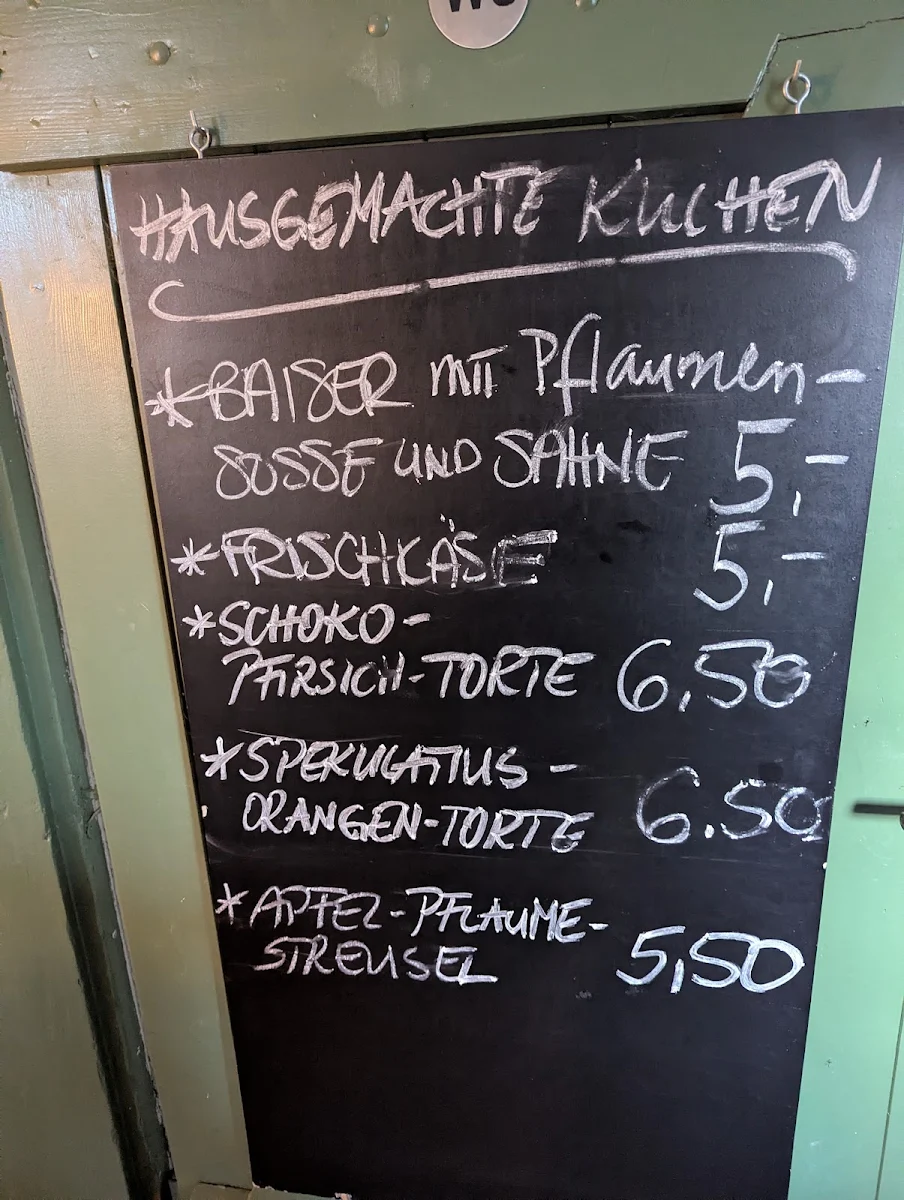 WC
HAUSGEMACHTE KUCHEN
*BAISER mit Pflaumen-
SOSSE UND SAHNE 5,-
*FRISCHKÄSE 5,-
*SCHOKO-
PFIRSICH-TORTE 6,50
*SPEKULATIUS-
ORANGEN-TORTE 6.50
*APFEL-PFLAUME-
STREUSEL 5,50